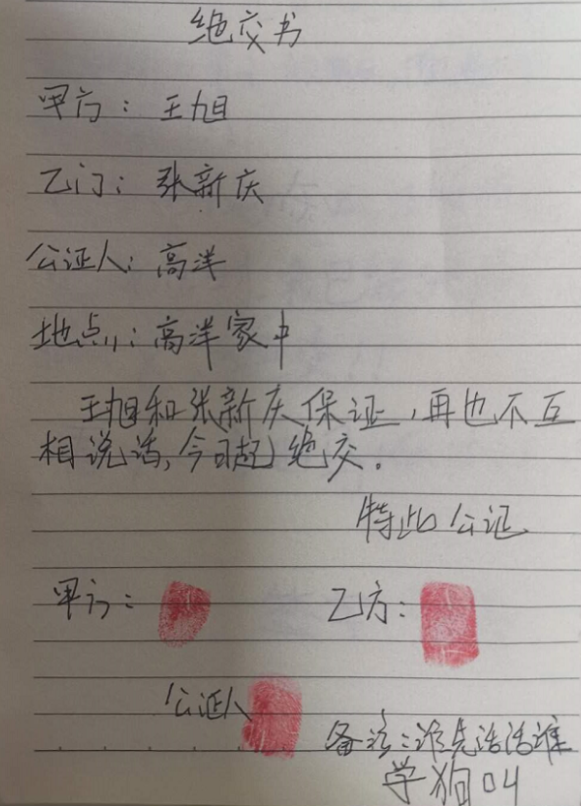 绝交书
甲方：王旭
乙门：张新庆
公证人：高洋
地点：高洋家中
王旭和张新庆保证，再也不互
相说话，今日起绝交。
特此公证
甲方：
乙方：
公证人
备注：谁先说话谁
学狗叫